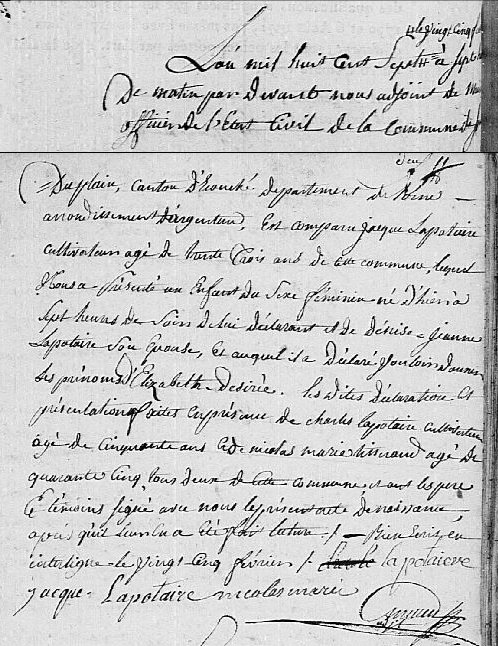 le vingt cinq f
L'an mil huit cent Sept à Sept
De matin par devant nous adjoint de
officier de l'Etat Civil de la Commune de
Duplain, canton d'Ecouché département de l'orne
arrondissement d'argentan, Est comparu jacque Lapotaire
cultivateur agé de trente trois ans de cette commune, lequel
Nous a présenté un Enfant du Sexe féminin né d'hier à
Sept heures de Soir de lui déclarant et de Désirée jeanne
Lapotaire Son Epouse, et auquel il a Déclaré Vouloir donner
les prénoms d'Elizabeth Désirée. les dites déclaration Et
présentation faites en présence de charles lapotaire cultivateur
agé de cinquante ans et de nicolas marie agé de
quarante cinq tous deux de cette commune et ont les pere
Et témoins signé avec nous le présent acte de naissance,
après qu'il leur en a été fait lecture ./. Bien Ecrit en
interligne le vingt cinq février ./. lapotaire
jacque Lapotaire nicolas marie